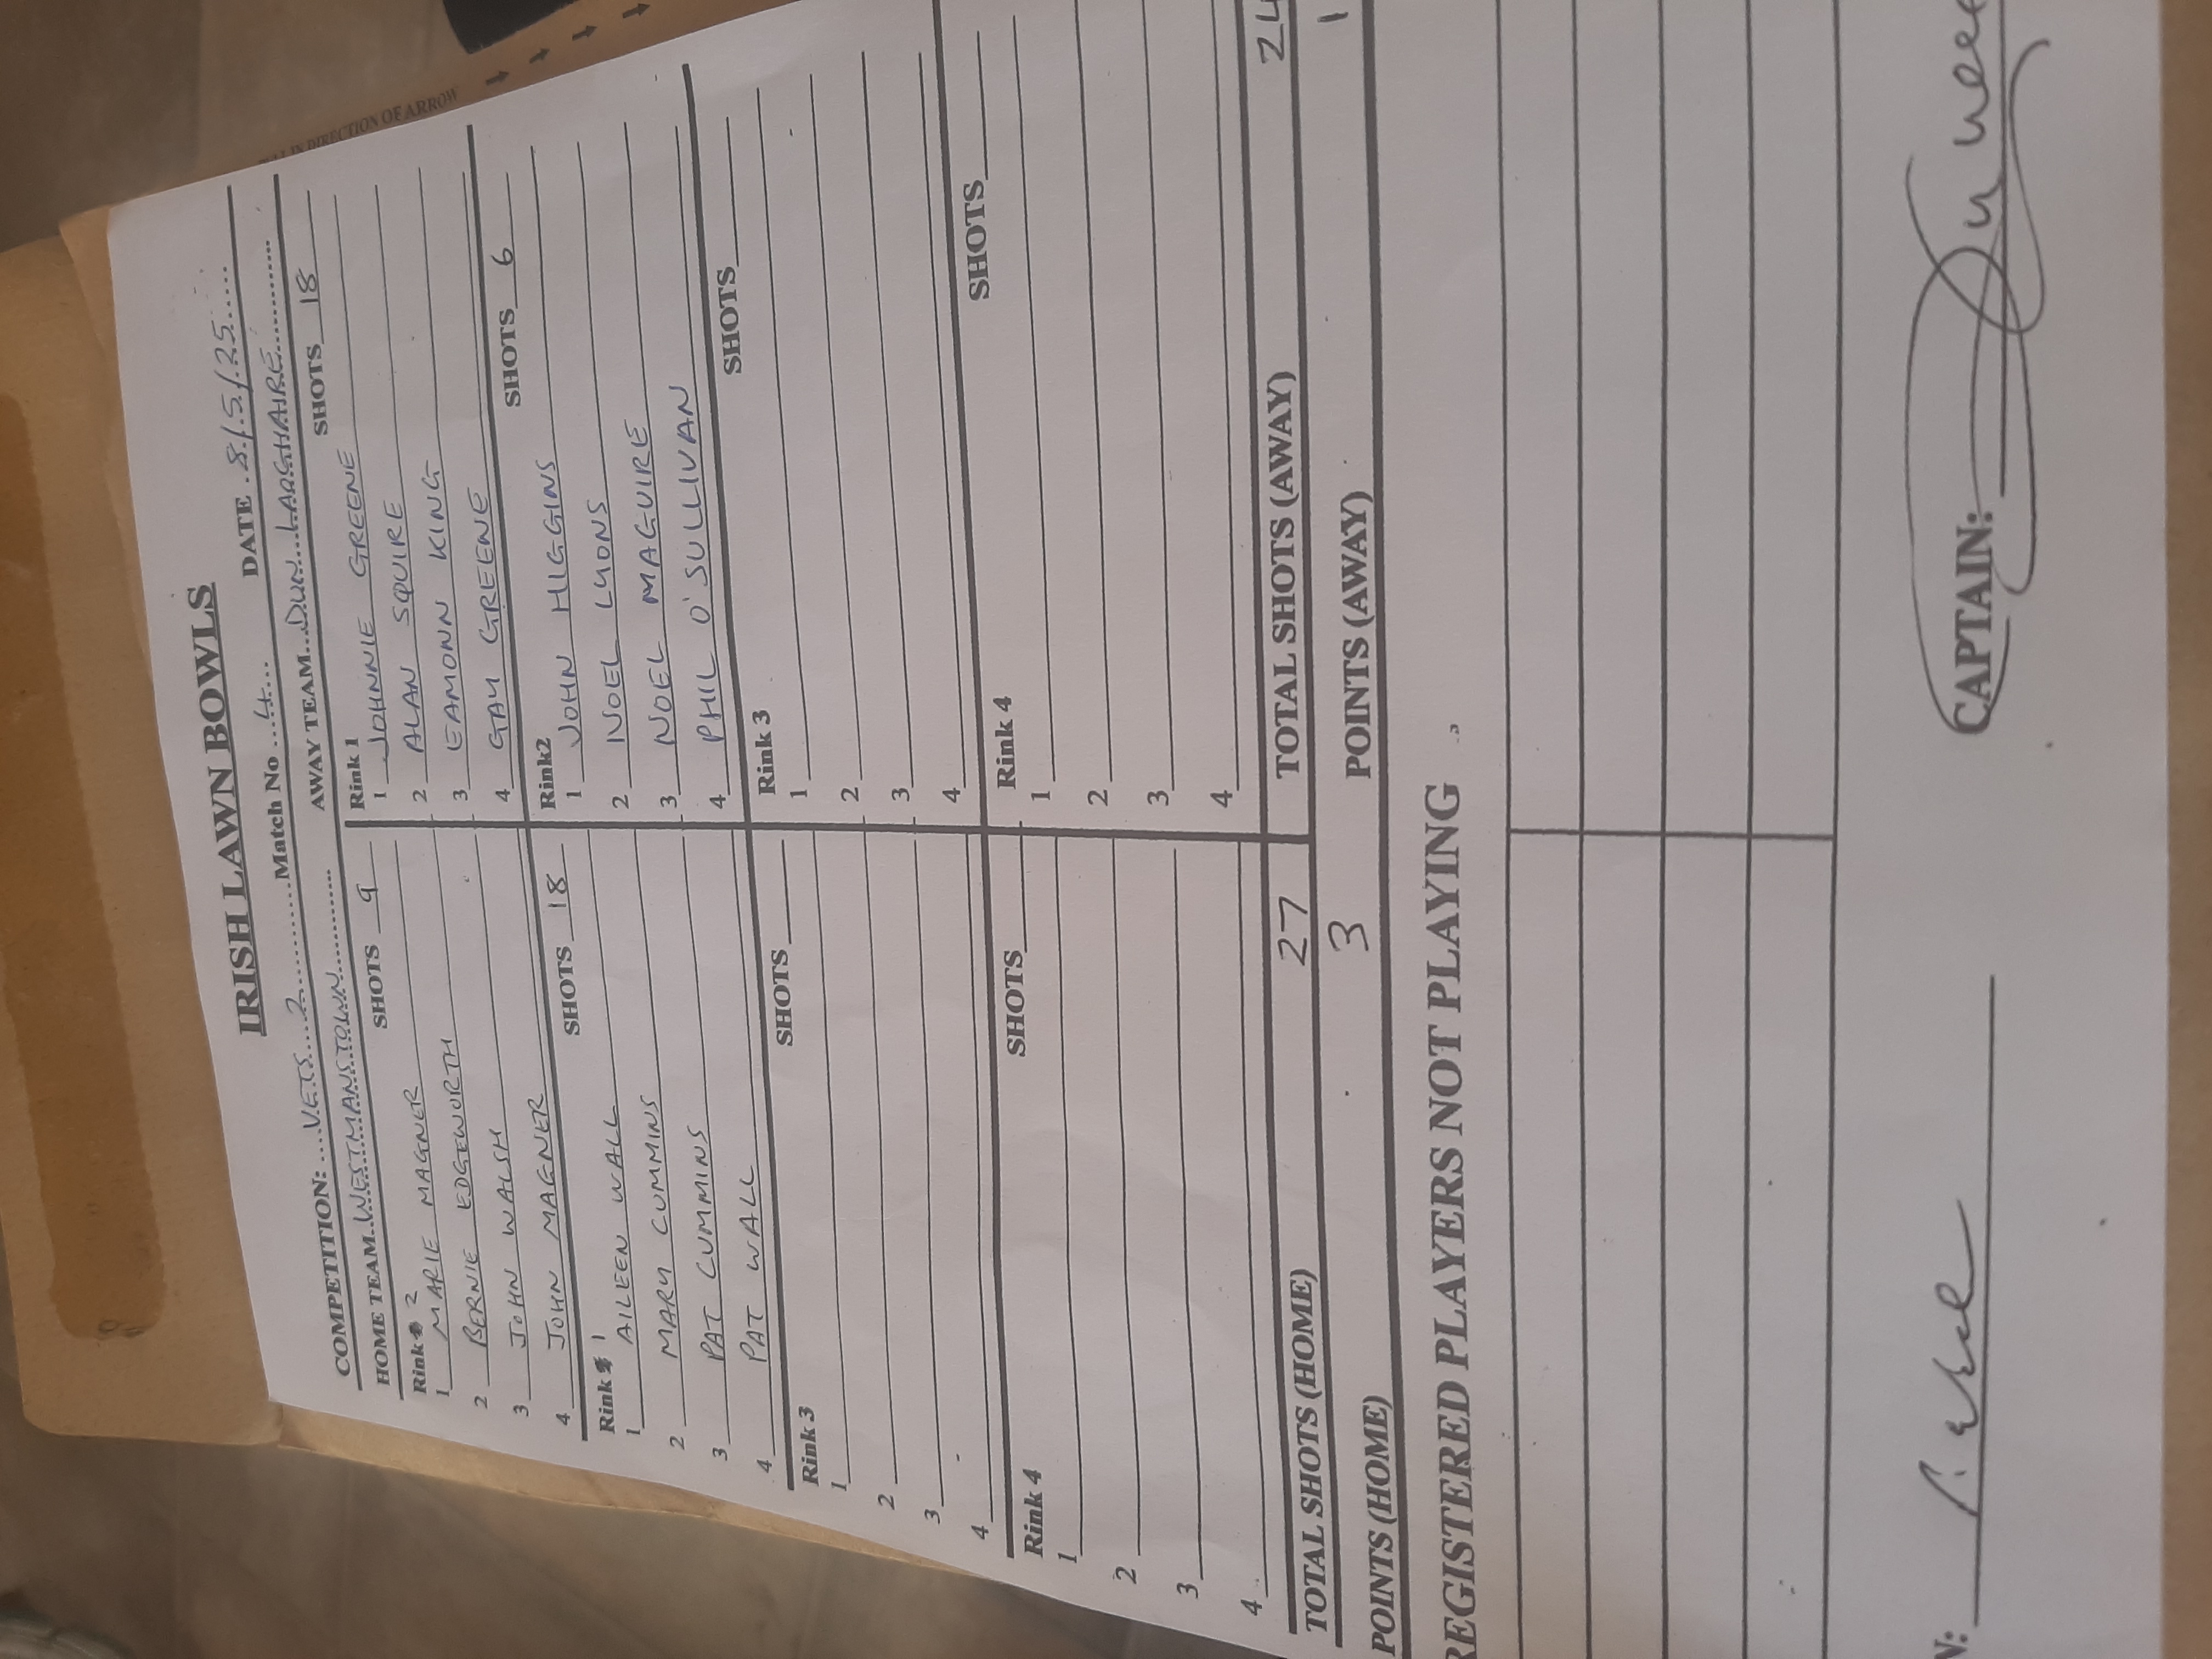 IN DIRECTION OF ARROW
IRISH LAWN BOWLS
COMPETITION: VETS 2 Match No 4 DATE 8/5/25
HOME TEAM WESTMANSTOWN AWAY TEAM DUN LAOGHAIRE
Rink 2 SHOTS 9
1 MARIE MAGNER
2 BERNIE EDGEWORTH
3 JOHN WALSH
4 JOHN MAGNER
Rink 1 SHOTS 18
1 AILEEN WALL
2 MARY CUMMINS
3 PAT CUMMINS
4 PAT WALL
Rink 3 SHOTS
1
2
3
4
Rink 4 SHOTS
1
2
3
4
Rink 1 SHOTS 18
1 JOHNNIE GREENE
2 ALAN SQUIRE
3 EAMONN KING
4 GAY GREENE
Rink2 SHOTS 6
1 JOHN HIGGINS
2 NOEL LYONS
3 NOEL MAGUIRE
4 PHIL O'SULLIVAN
Rink 3 SHOTS
1
2
3
4
Rink 4 SHOTS
1
2
3
4
TOTAL SHOTS (HOME) 27 TOTAL SHOTS (AWAY) 24
POINTS (HOME) 3 POINTS (AWAY) 1
REGISTERED PLAYERS NOT PLAYING
N: CAPTAIN: